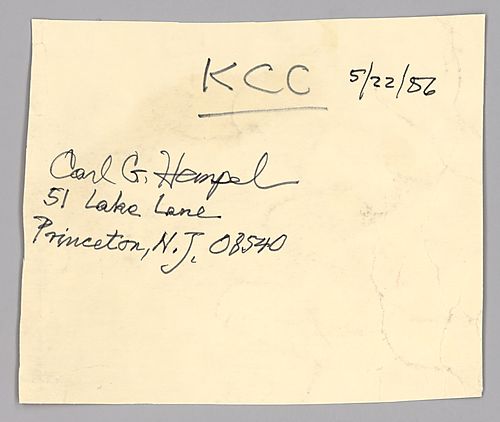 KCC 5/22/86
Carl G. Hempel
51 Lake Lane
Princeton, N.J. 08540